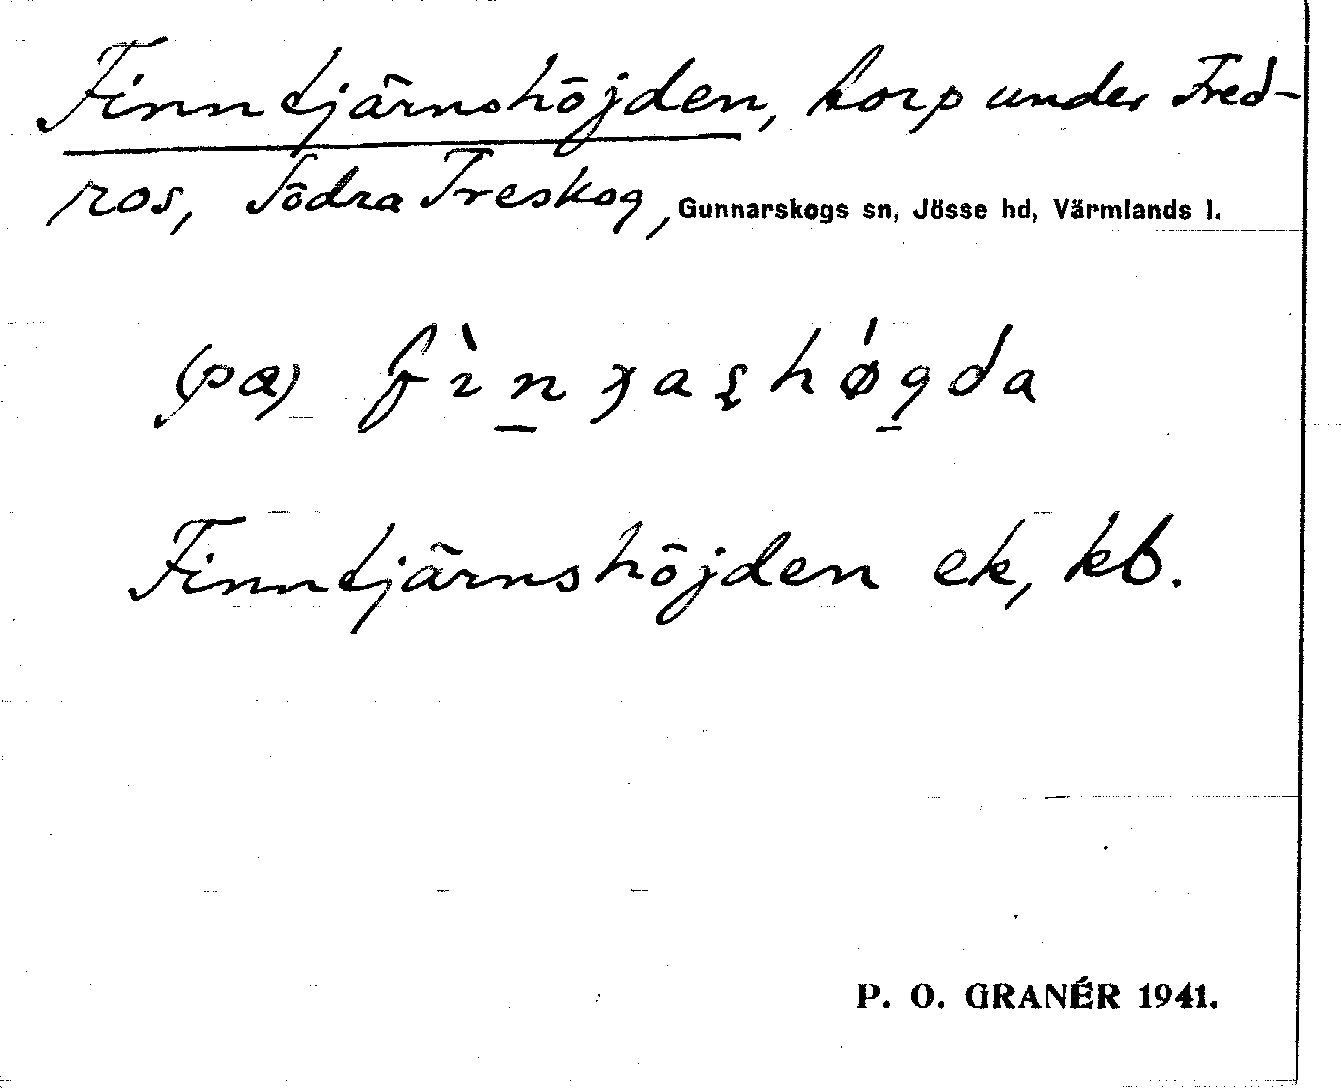 Finntjärnshöjden, torp under Fred-
ros, Södra Treskog, Gunnarskogs sn, Jösse hd, Värmlands l.
(pa)
Finntjärnshöjden ek, kb.
P. O. GRANÉR 1941.